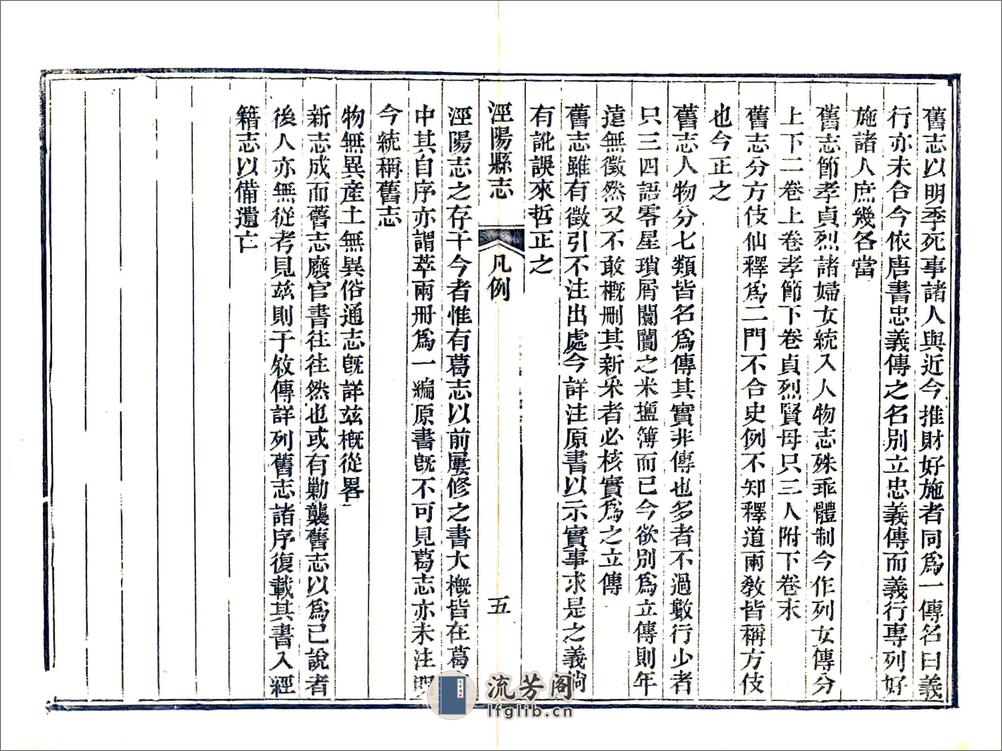 舊志以明季死事諸人與近今推財好施者同爲一傳名曰義
行亦未合今依唐書忠義傳之名別立忠義傳而義行專列好
施諸人庶幾各當
舊志節孝貞烈諸婦女統入人物志殊乖體制今作列女傳分
上下二卷上卷孝節下卷貞烈賢母只三人附下卷末
舊志分方伎仙釋爲二門不合史例不知釋道兩敎皆稱方伎
也今正之
舊志人物分七類皆名爲傳其實非傳也多者不過數行少者
只三四語零星瑣屑闤闠之米鹽簿而已今欲別爲立傳則年
遠無徵然又不敢概刪其新采者必核實爲之立傳
舊志雖有徵引不注出處今詳注原書以示實事求是之義倘
有訛誤來哲正之
涇陽縣志
凡例
五
涇陽志之存于今者惟有葛志以前屢修之書大概皆在葛
中其自序亦謂萃兩册爲一編原書旣不可見葛志亦未注明
今統稱舊志
物無異產土無異俗通志旣詳玆概從畧
新志成而舊志廢官書往往然也或有勦襲舊志以爲己說者
後人亦無從考見玆則于敘傳詳列舊志諸序復載其書入經
籍志以備遺亡
流芳阁
lfglib.cn